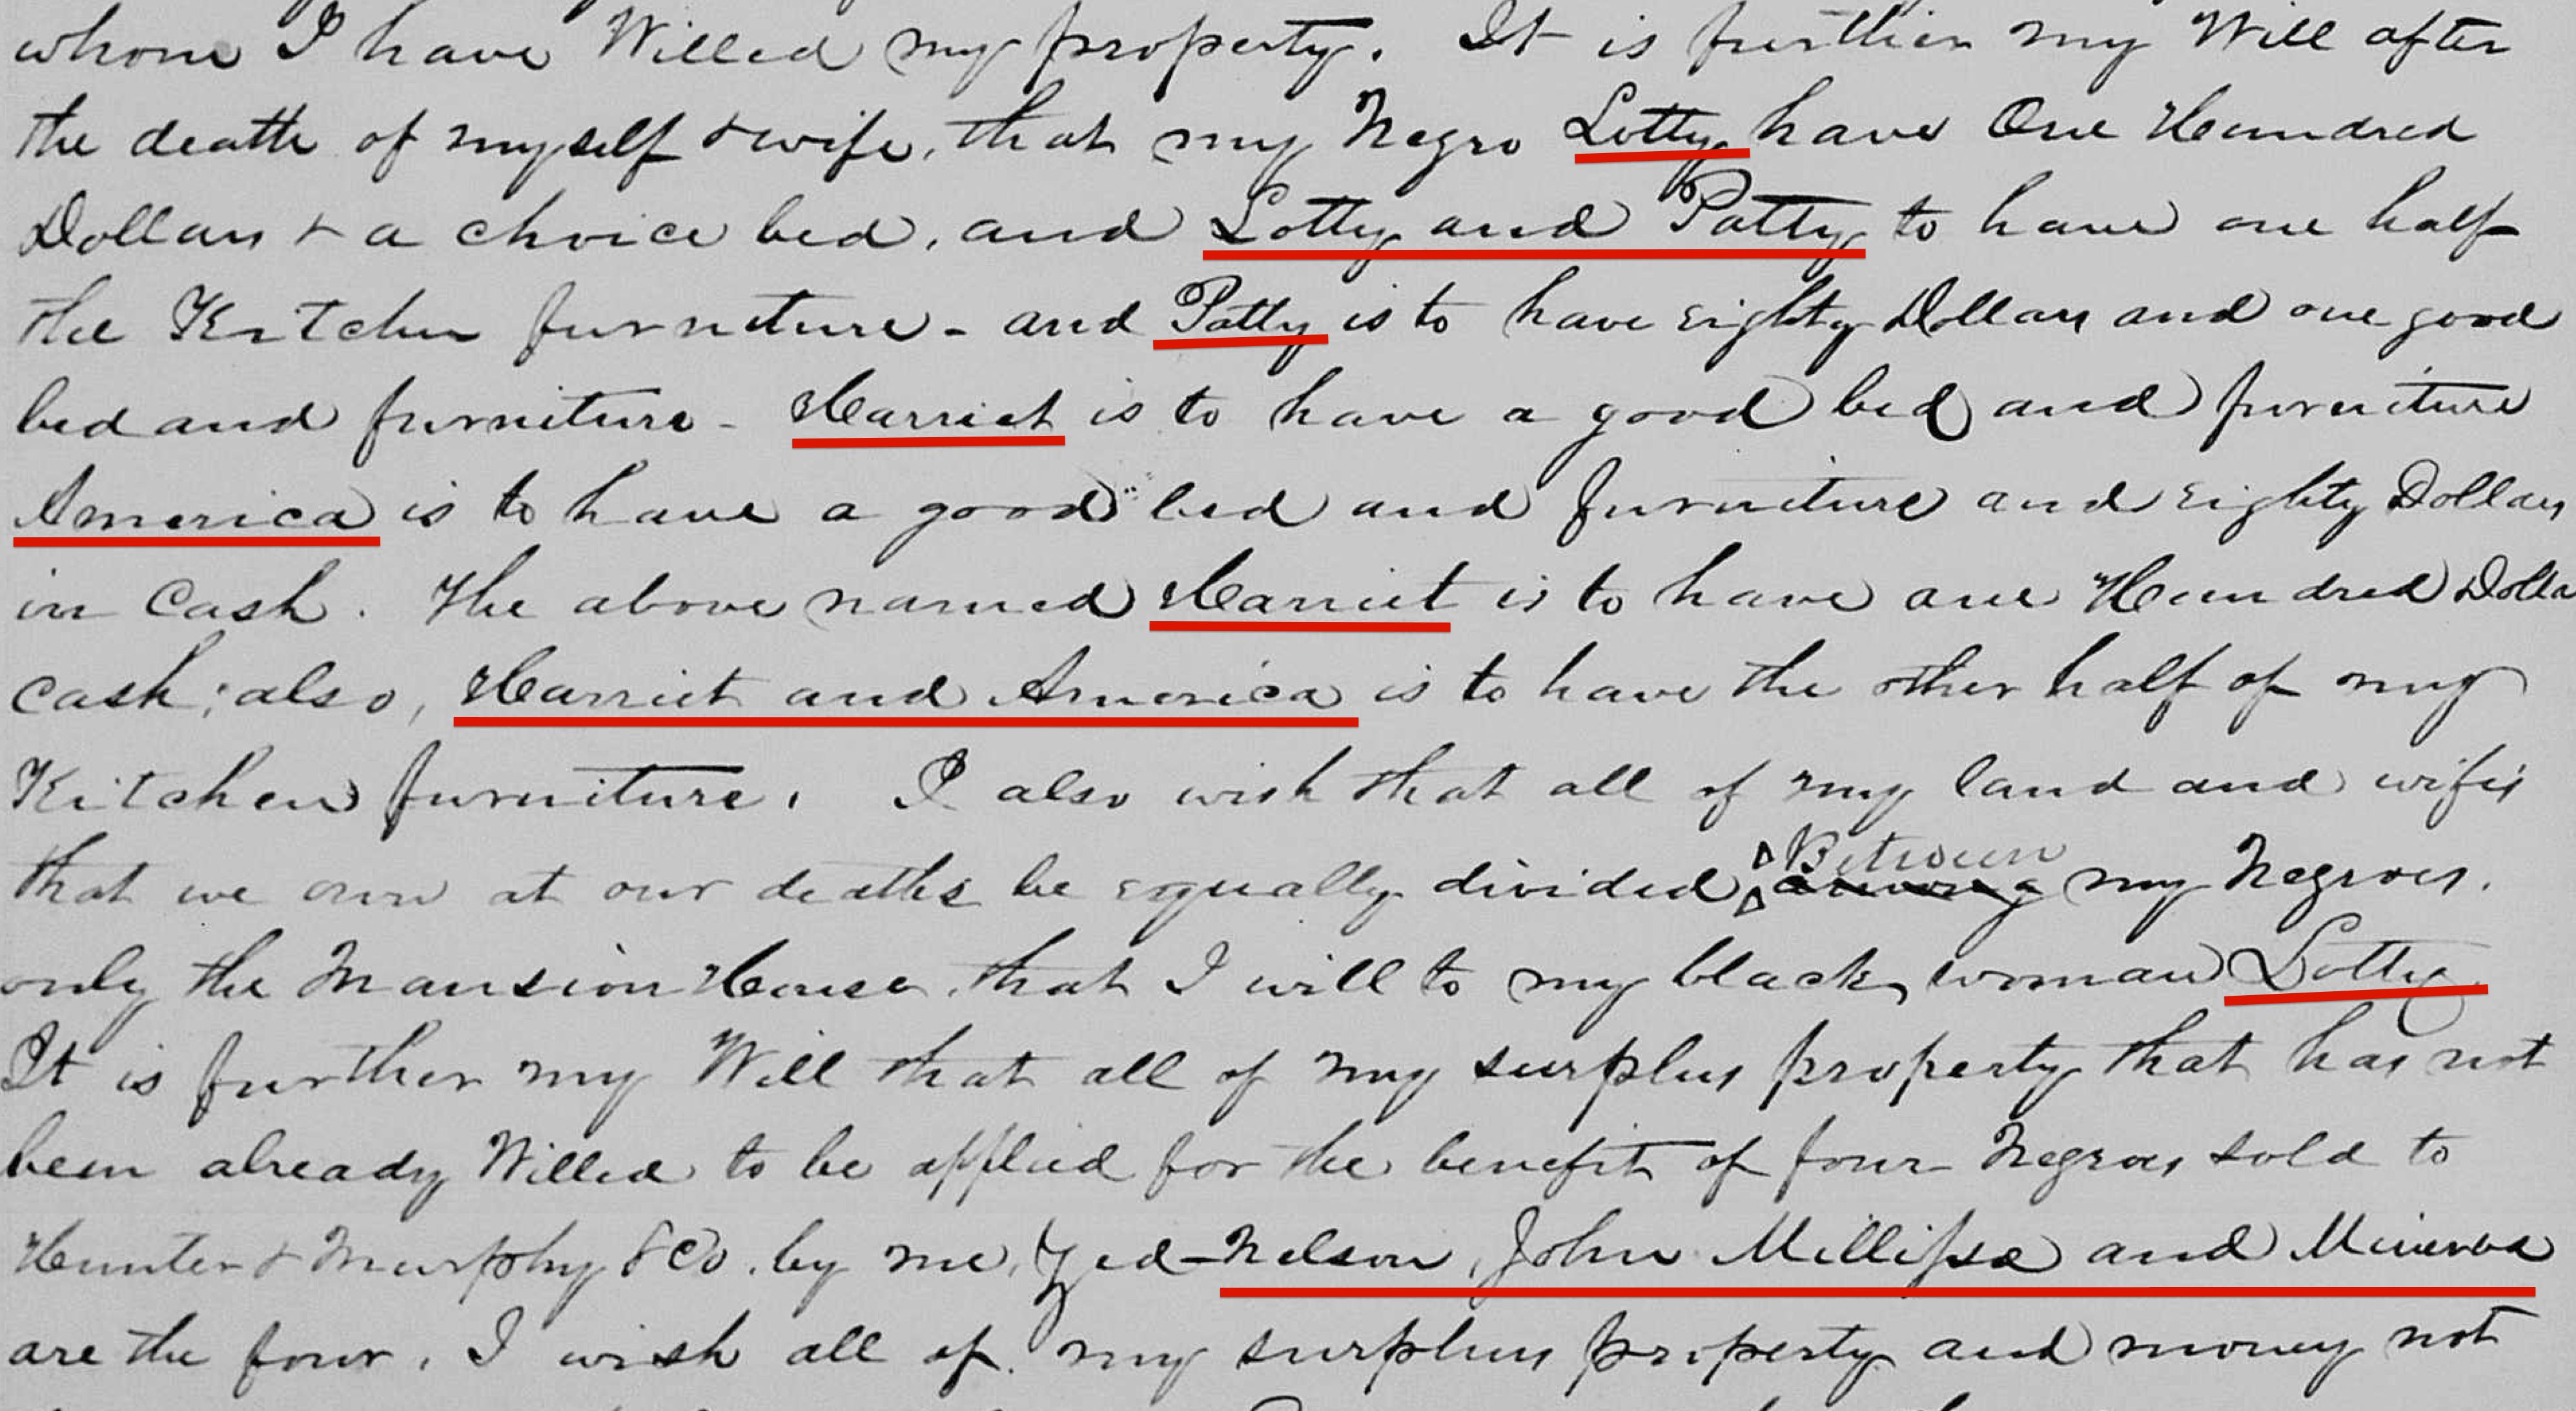 whom I have Willed my property. It is further my Will after
the death of myself & wife, that my Negro Lotty have One Hundred
Dollars & a choice bed, and Lotty and Patty to have one half
the Kitchen furniture - and Patty is to have eighty Dollars and one good
bed and furniture - Harriet is to have a good bed and furniture
America is to have a good bed and furniture and eighty Dollars
in Cash. The above named Harriet is to have one Hundred Dolla
Cash; also, Harriet and America is to have the other half of my
Kitchen furniture. I also wish that all of my land and wifes
that we own at our deaths be equally divided Between among my Negroes.
only the Mansion House, that I will to my black woman Lotty
It is further my Will that all of my surplus property that has not
been already Willed to be applied for the benefit of four Negroes sold to
Hunter & Murphy & Co. by me, Yed - Nelson, John Millissa and Minerva
are the four. I wish all of my surplus property and money not